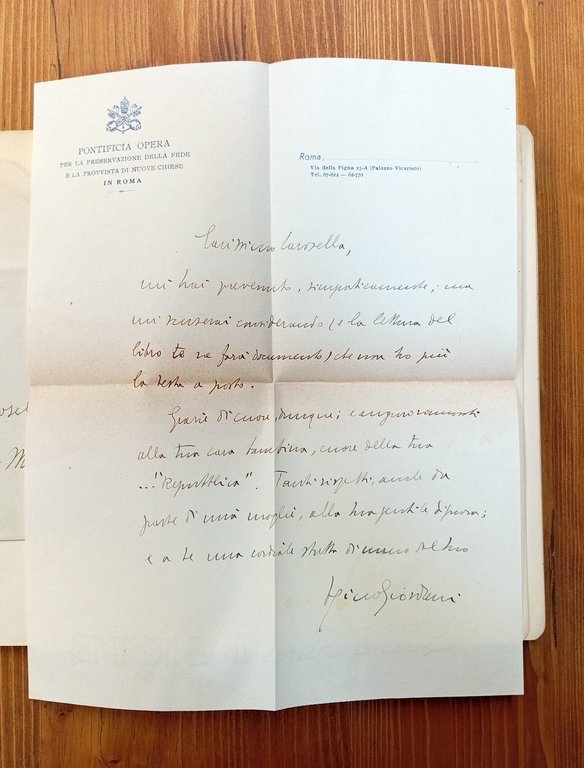 PONTIFICIA OPERA
PER LA PRESERVAZIONE DELLA FEDE
E LA PROVVISTA DI NUOVE CHIESE
IN ROMA
Roma,
Via della Pigna 13-A (Palazzo Vicariato)
Tel. 67-614 — 62-370
Carissimo Carosella,
mi hai prevenuto, simpaticamente; ma
mi scuserai considerando (e la lettura del
libro te ne farà documento) che non ho più
la testa a posto.
Grazie di cuore, dunque; e auguroni
alla tua cara bambina, cuore della tua
... "Repubblica". Tanti rispetti, anche da
parte di mia moglie, alla tua gentile Signora;
e a te una cordiale stretta di mano dal tuo
Igino Giordani
osel
M